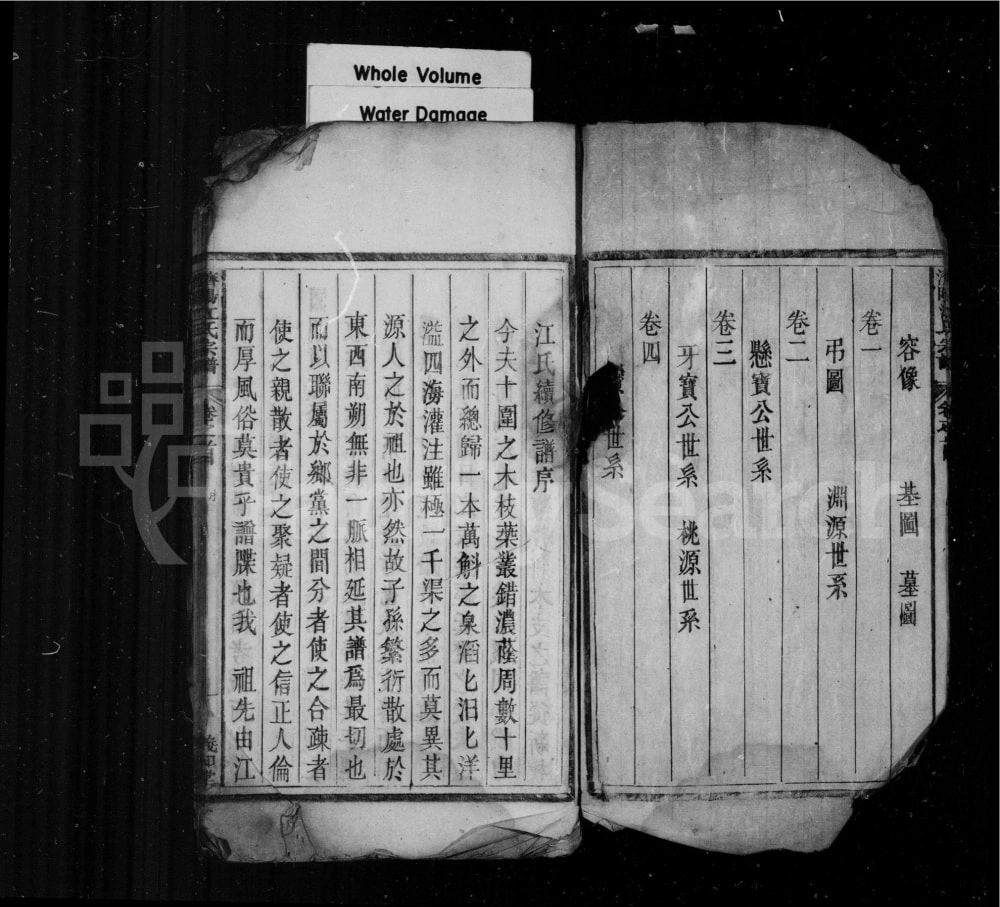 Whole Volume
Water Damage
容像 基圖 墓圖
卷一
弔圖 淵源世系
卷二
懸寶公世系
卷三
牙寶公世系 桃源世系
卷四
世系
江氏續修譜序
今夫十圍之木枝葉叢錯濃蔭周數十里
之外而總歸一本萬斛之泉滔匕汨匕洋
溢四海灌注雖極一千渠之多而莫異其
源人之於祖也亦然故子孫繁衍散處於
東西南朔無非一脈相延其譜爲最切也
而以聯屬於鄉黨之間分者使之合疎者
使之親散者使之聚疑者使之信正人倫
而厚風俗莫貴乎譜牒也我 祖先由江
濟陽江氏宗譜